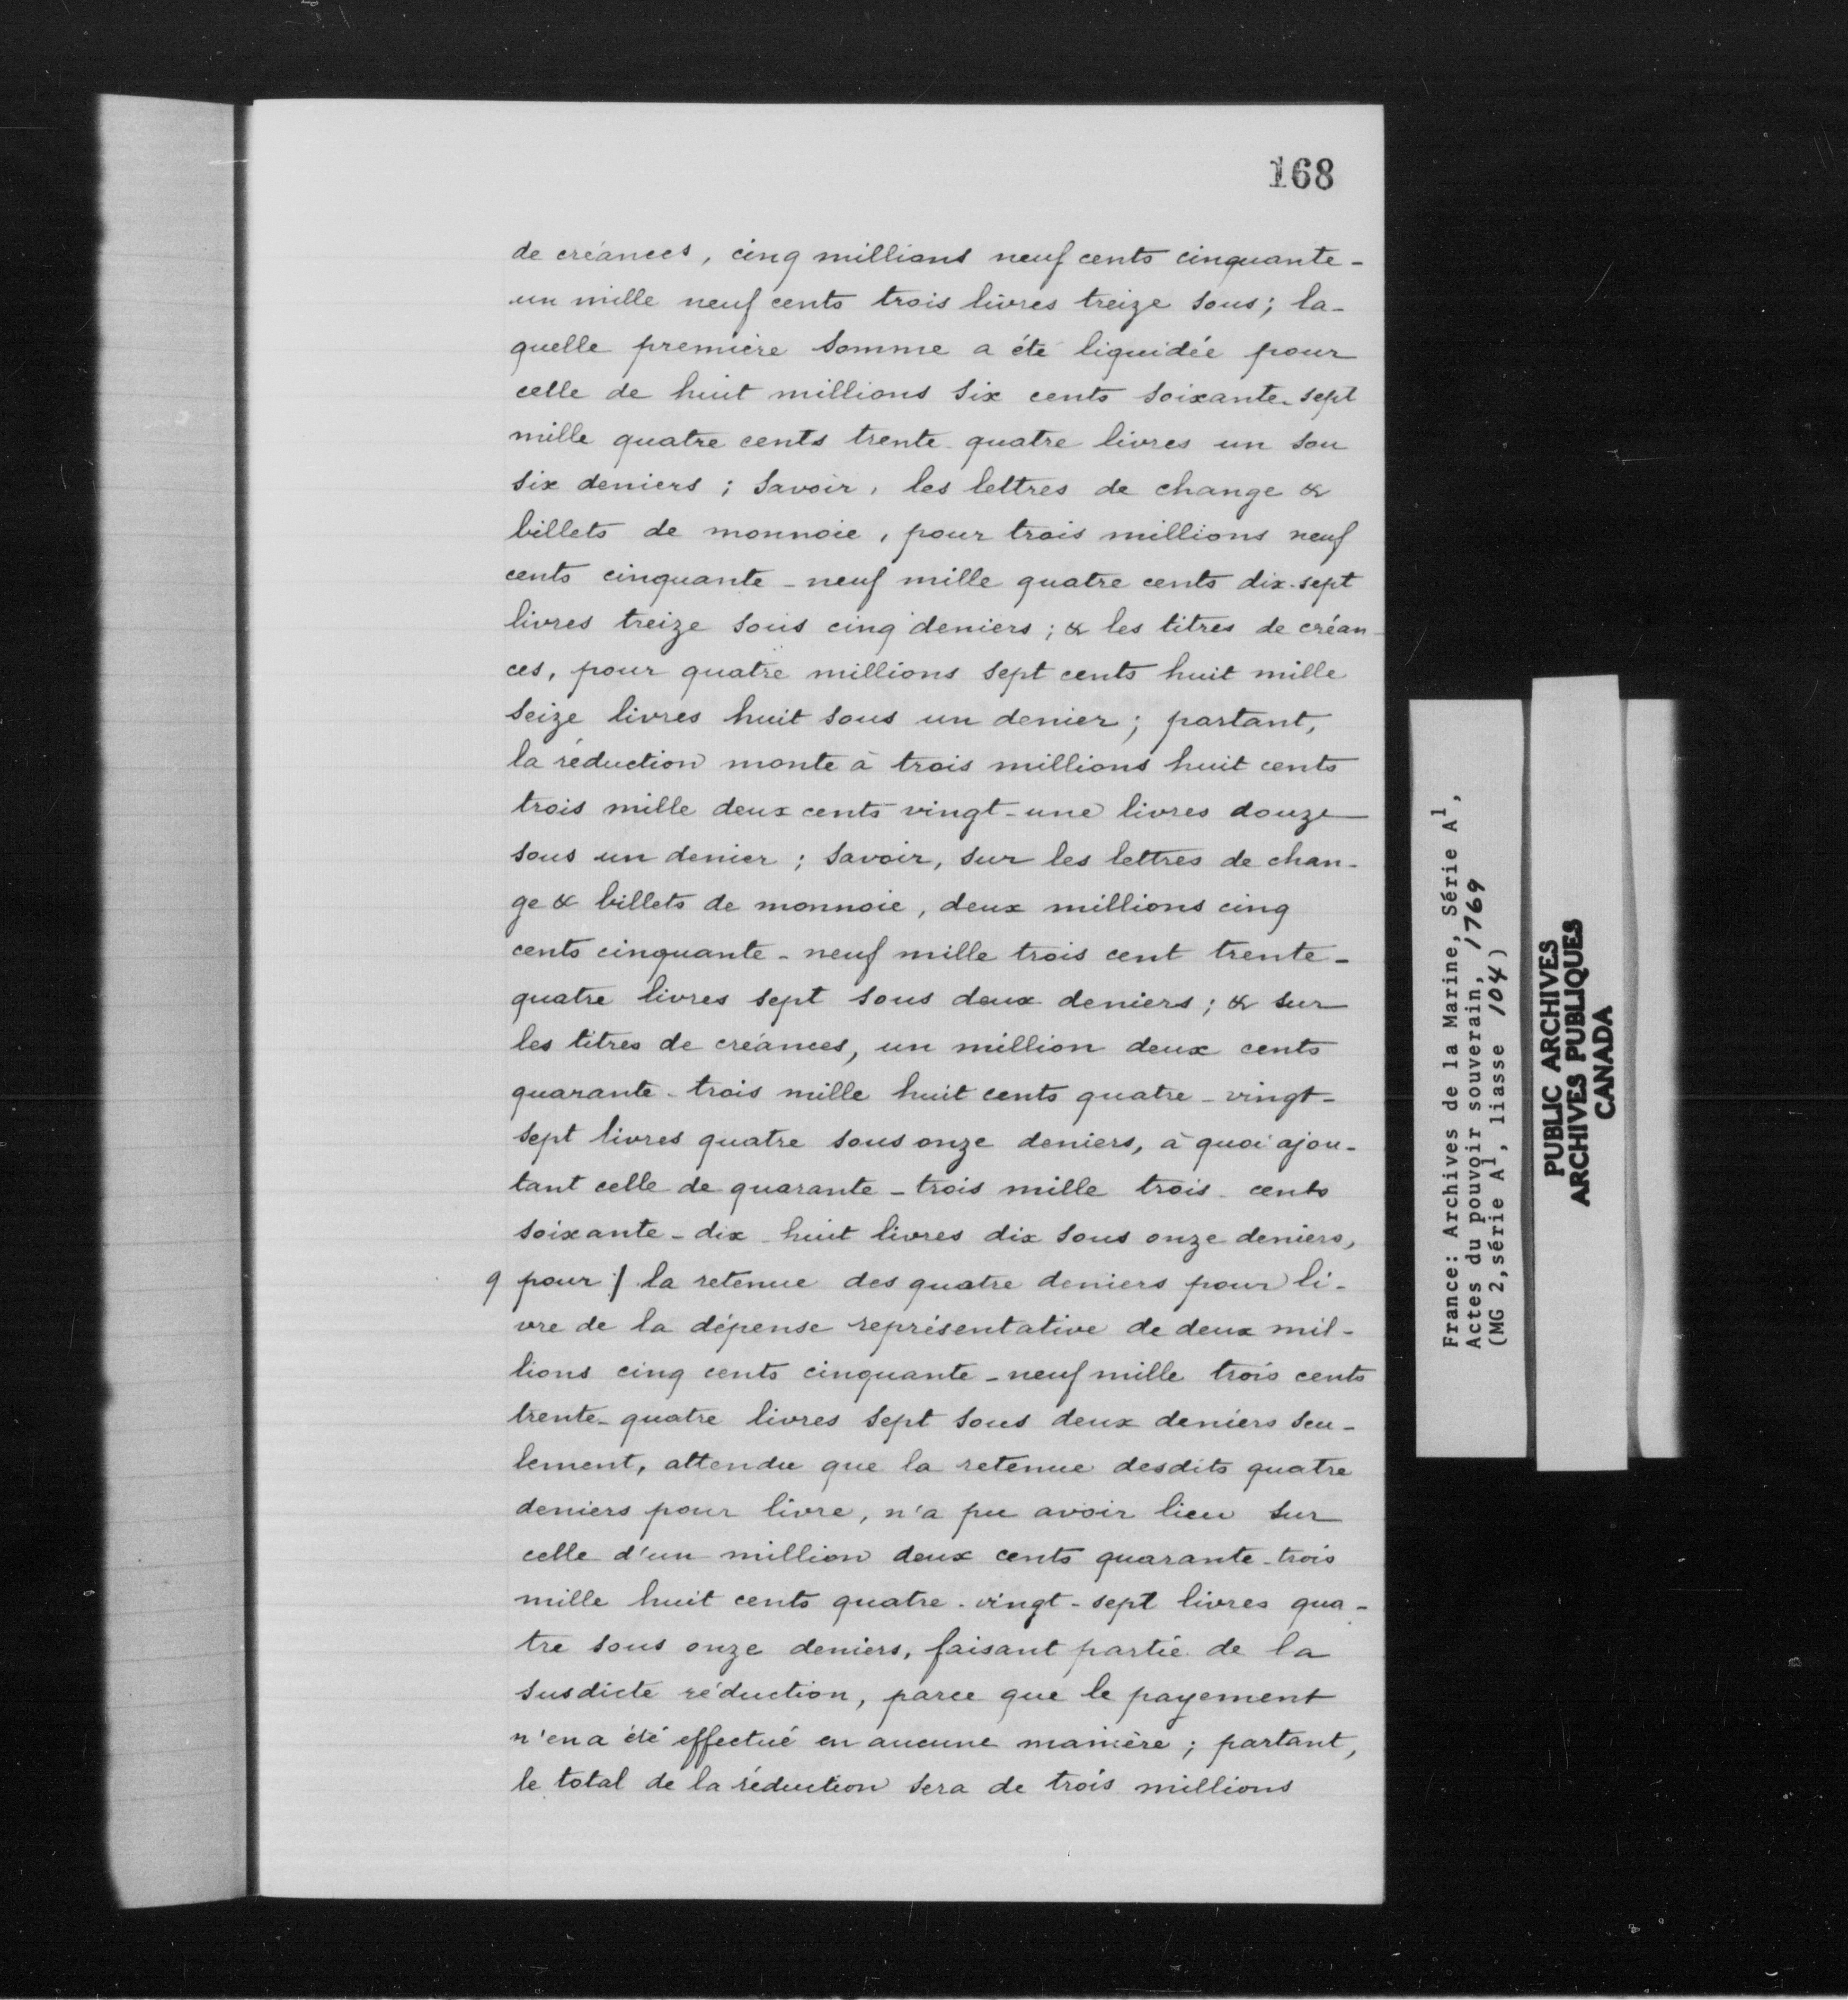 168
de créances, cinq millions neuf cents cinquante-
un mille neuf cents trois livres treize sous; la-
quelle première somme a été liquidée pour
celle de huit millions six cents soixante-sept
mille quatre cents trente-quatre livres un sou
six deniers; savoir, les lettres de change &
billets de monnoie, pour trois millions neuf
cents cinquante-neuf mille quatre cents dix-sept
livres treize sous cinq deniers; & les titres de créan-
ces, pour quatre millions sept cents huit mille
seize livres huit sous un denier; partant,
la réduction monte à trois millions huit cents
trois mille deux cents vingt-une livres douze
sous un denier; savoir, sur les lettres de chan-
ge & billets de monnoie, deux millions cinq
cents cinquante-neuf mille trois cent trente-
quatre livres sept sous deux deniers; & sur
les titres de créances, un million deux cents
quarante-trois mille huit cents quatre-vingt-
sept livres quatre sous onze deniers, à quoi ajou-
tant celle de quarante-trois mille trois cents
soixante-dix-huit livres dix sous onze deniers,
9 pour / la retenue des quatre deniers pour li-
vre de la dépense représentative de deux mil-
lions cinq cents cinquante-neuf mille trois cents
trente-quatre livres sept sous deux deniers seu-
lement, attendu que la retenue desdits quatre
deniers pour livre, n'a pu avoir lieu sur
celle d'un million deux cents quarante-trois
mille huit cents quatre-vingt-sept livres qua-
tre sous onze deniers, faisant partie de la
susdicte réduction, parce que le payement
n'en a été effectué en aucune manière; partant,
le total de la réduction sera de trois millions
France: Archives de la Marine, Série A1,
Actes du pouvoir souverain, 1769
(MG 2, série A1, liasse 104)
PUBLIC ARCHIVES
ARCHIVES PUBLIQUES
CANADA